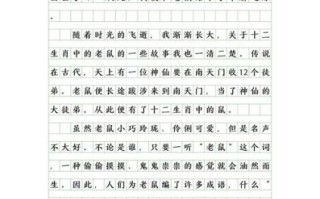 随着时光的飞逝，我渐渐长大，关于十二
生肖中的老鼠的一些故事我也一清二楚，传说
在古代，天上有一位神仙要在南天门收12个徒
弟，老鼠便长途跋涉来到南天门，当了神仙的
大徒弟。从此便有了十二生肖中的鼠。
虽然老鼠小巧玲珑，伶俐可爱，但是名声
不大好，不论是谁，只要一听“老鼠”这个词
，一种偷偷摸摸、鬼鬼祟祟的感觉就会油然而
生，因此，人们为老鼠编了许多成语，什么“